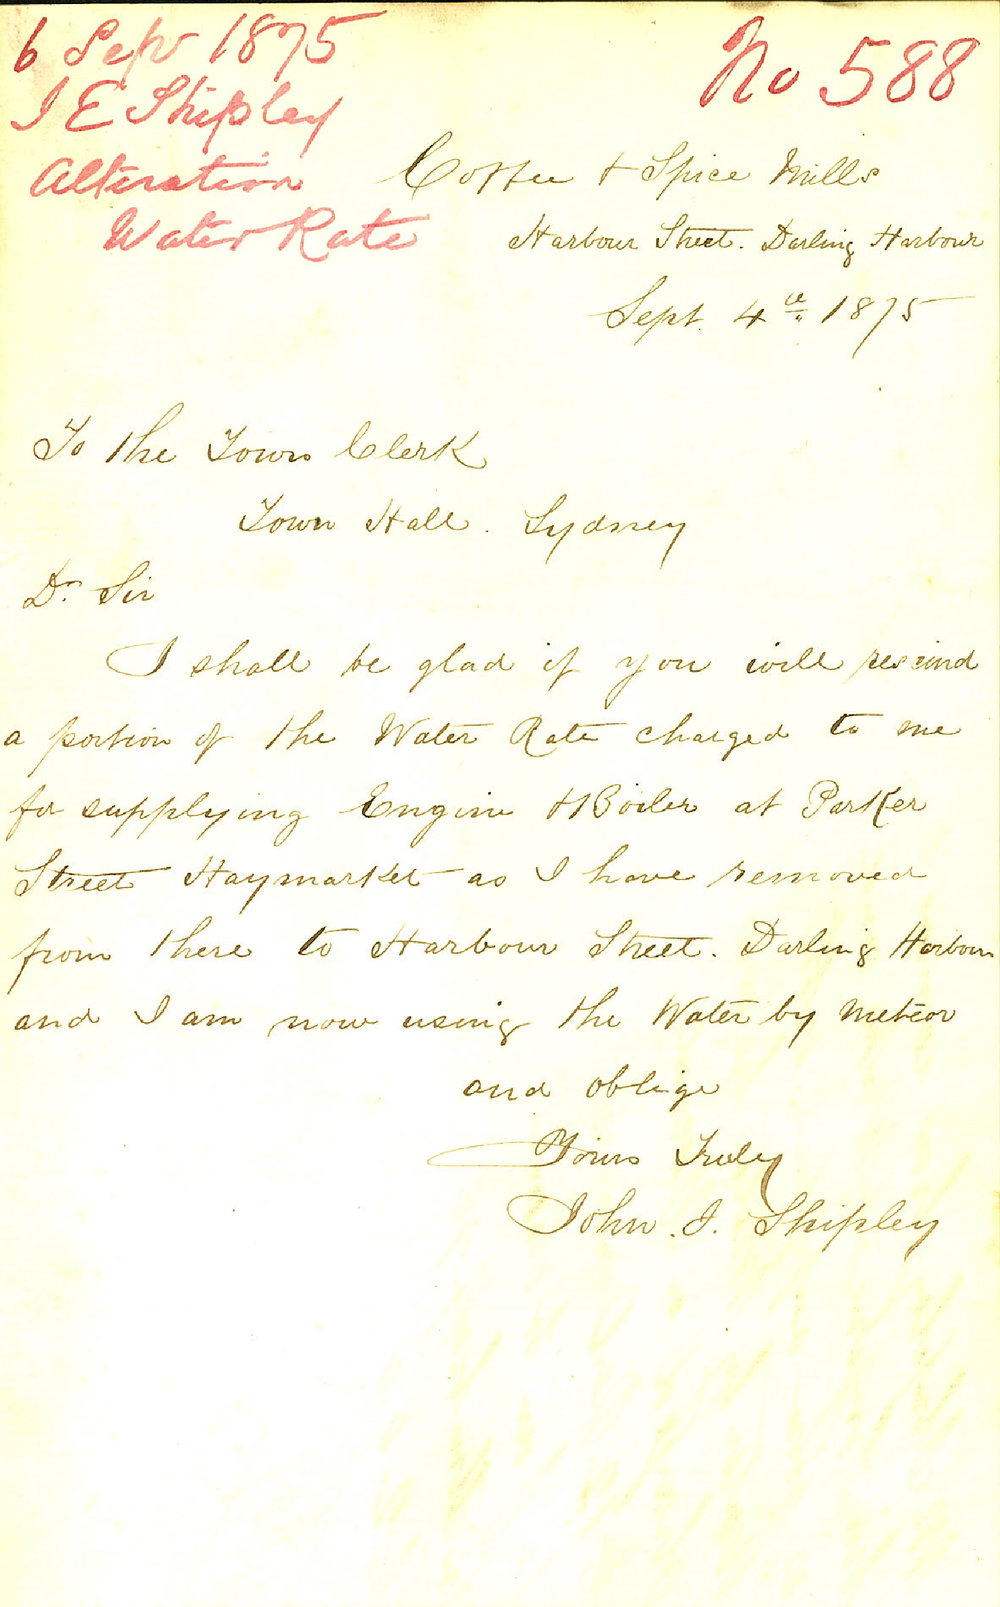 6 Sep 1875
J E Shipley
Alteration
Water Rate
No 588
Coffee & Spice Mills
Harbour Street. Darling Harbour
Sept. 4th 1875
To the Town Clerk
Town Hall. Sydney
Dr Sir
I shall be glad if you will rescind
a portion of the Water Rate charged to me
for supplying Engine & Boiler at Parker
Street Haymarket as I have removed
from there to Harbour Street. Darling Harbour
and I am now using the Water by meteor
and oblige
Yours Truly
John. J. Shipley